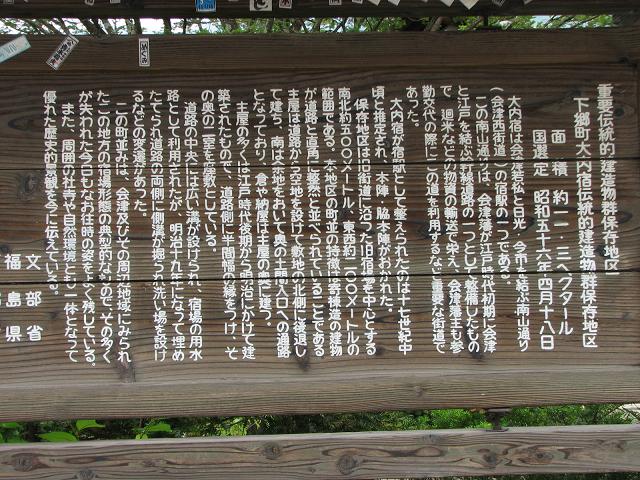 重要伝統的建造物群保存地区
下郷町大内宿伝統的建造物群保存地区
面積 約一一・三ヘクタール
国選定 昭和五十六年四月十八日
大内宿は会津若松と日光 今市を結ぶ南山通り
(会津西街道)の宿駅の一つである。
この南山通りは、会津藩が江戸時代初期に会津
と江戸を結ぶ幹線道路の一つとして整備したもの
で、廻米などの物資の輸送で栄え、会津藩主も参
勤交代の際にこの道を利用するなど重要な街道で
あった。
大内宿が宿駅として整えられたのは十七世紀中
頃と推定され、本陣、脇本陣がおかれた。
保存地区は旧街道に沿った旧宿場を中心とする
南北約五〇〇メートル、東西約二〇〇メートルの
範囲である。本地区の町並の特徴は寄棟造の建物
が道路と直角に整然と並べられていることである
主屋は道路から空地を設けて敷地の北側に後退し
て建ち、南は空地をおいて奥の土間入口への通路
となっており、倉や納屋は主屋の奥に建つ。
主屋の多くは江戸時代後期から明治にかけて建
築されたもので、道路側に半間幅の縁をつけ、そ
の奥の二室を座敷としている。
道路の中央には広い溝が設けられ、宿場の用水
路として利用されたが、明治十九年になって埋め
たてられ道路の両側に側溝が掘られ洗い場を設け
るなどの変遷があった。
この町並みは、会津及びその周辺地域にみられ
たこの地方の宿場形態の典型的なもので、その多く
が失われた今日もなお往時の姿をよく残している。
また、周囲の社寺や自然環境とも一体となって
優れた歴史的景観を今に伝えている。
文部省
福島県